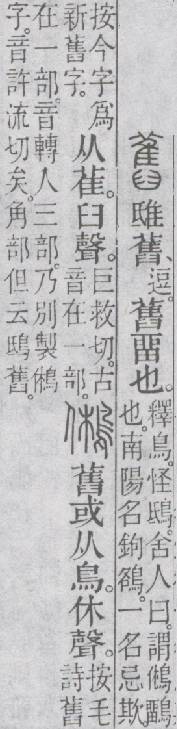 舊 䧴舊、逗。舊畱也。釋鳥。怪鴟。舍人曰。謂鵂鶹也。南陽名鉤鵅。一名忌欺。
按今字爲新舊字。从萑。臼聲。巨救切。古音在一部。鵂 舊或从鳥。休聲。按毛詩舊
在一部。音轉入三部。乃別製鵂字。音許流切矣。角部但云鴟舊。